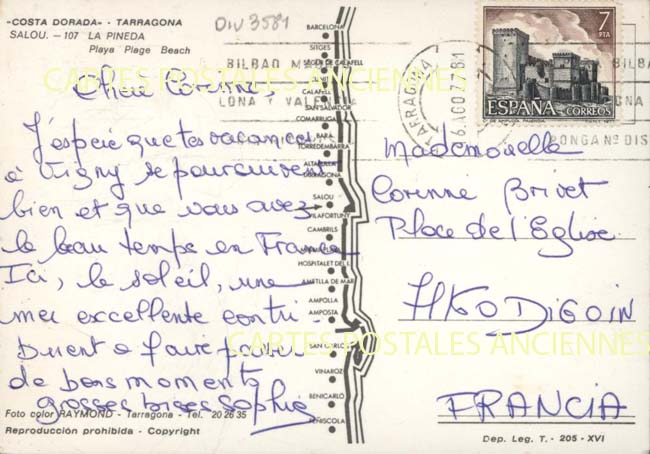 «COSTA DORADA» - TARRAGONA
SALOU. - 107 LA PINEDA
Playa Plage Beach
Div 3581
Chère Corinne,
J'espère que tes vacances
à Vigny se poursuivent
bien et que vous avez
le beau temps en France
Ici, le soleil, une
mer excellente contri-
buent à faire passer
de bons moments
grosses bises Sophie
Foto color RAYMOND - Tarragona - Tel. 20 26 35
Reproducción prohibida - Copyright
BARCELONA
SITGES
CALAFELL
SAN SALVADOR
COMARRUGA
BARA
TORREDEMBARRA
ALTAFULLA
TARRAGONA
SALOU
VILAFORTUNY
CAMBRILS
HOSPITALET DE I.
AMETLLA DE MAR
AMPOLLA
AMPOSTA
SAN CARLOS
VINAROZ
BENICARLÓ
PEÑISCOLA
BILBAO MA
LONA Y VALENCIA
TARRAGONA
7 PTA
ESPAÑA CORREOS
PONGA Nº DIS
Mademoiselle
Corinne Brivet
Place de l'Eglise
71160 DIGOIN
FRANCIA
Dep. Leg. T. - 205 - XVI
CARTES POSTALES ANCIENNES
CARTES POSTALES ANCIENNES